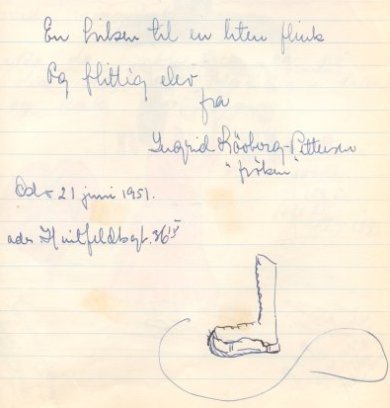 En hilsen til en liten flink
og flittig elev
fra
Ingrid Röoberg-Pettersen
"fröken"
Oslo 21 juni 1951.
adr. Huitfeldtsgt. 36